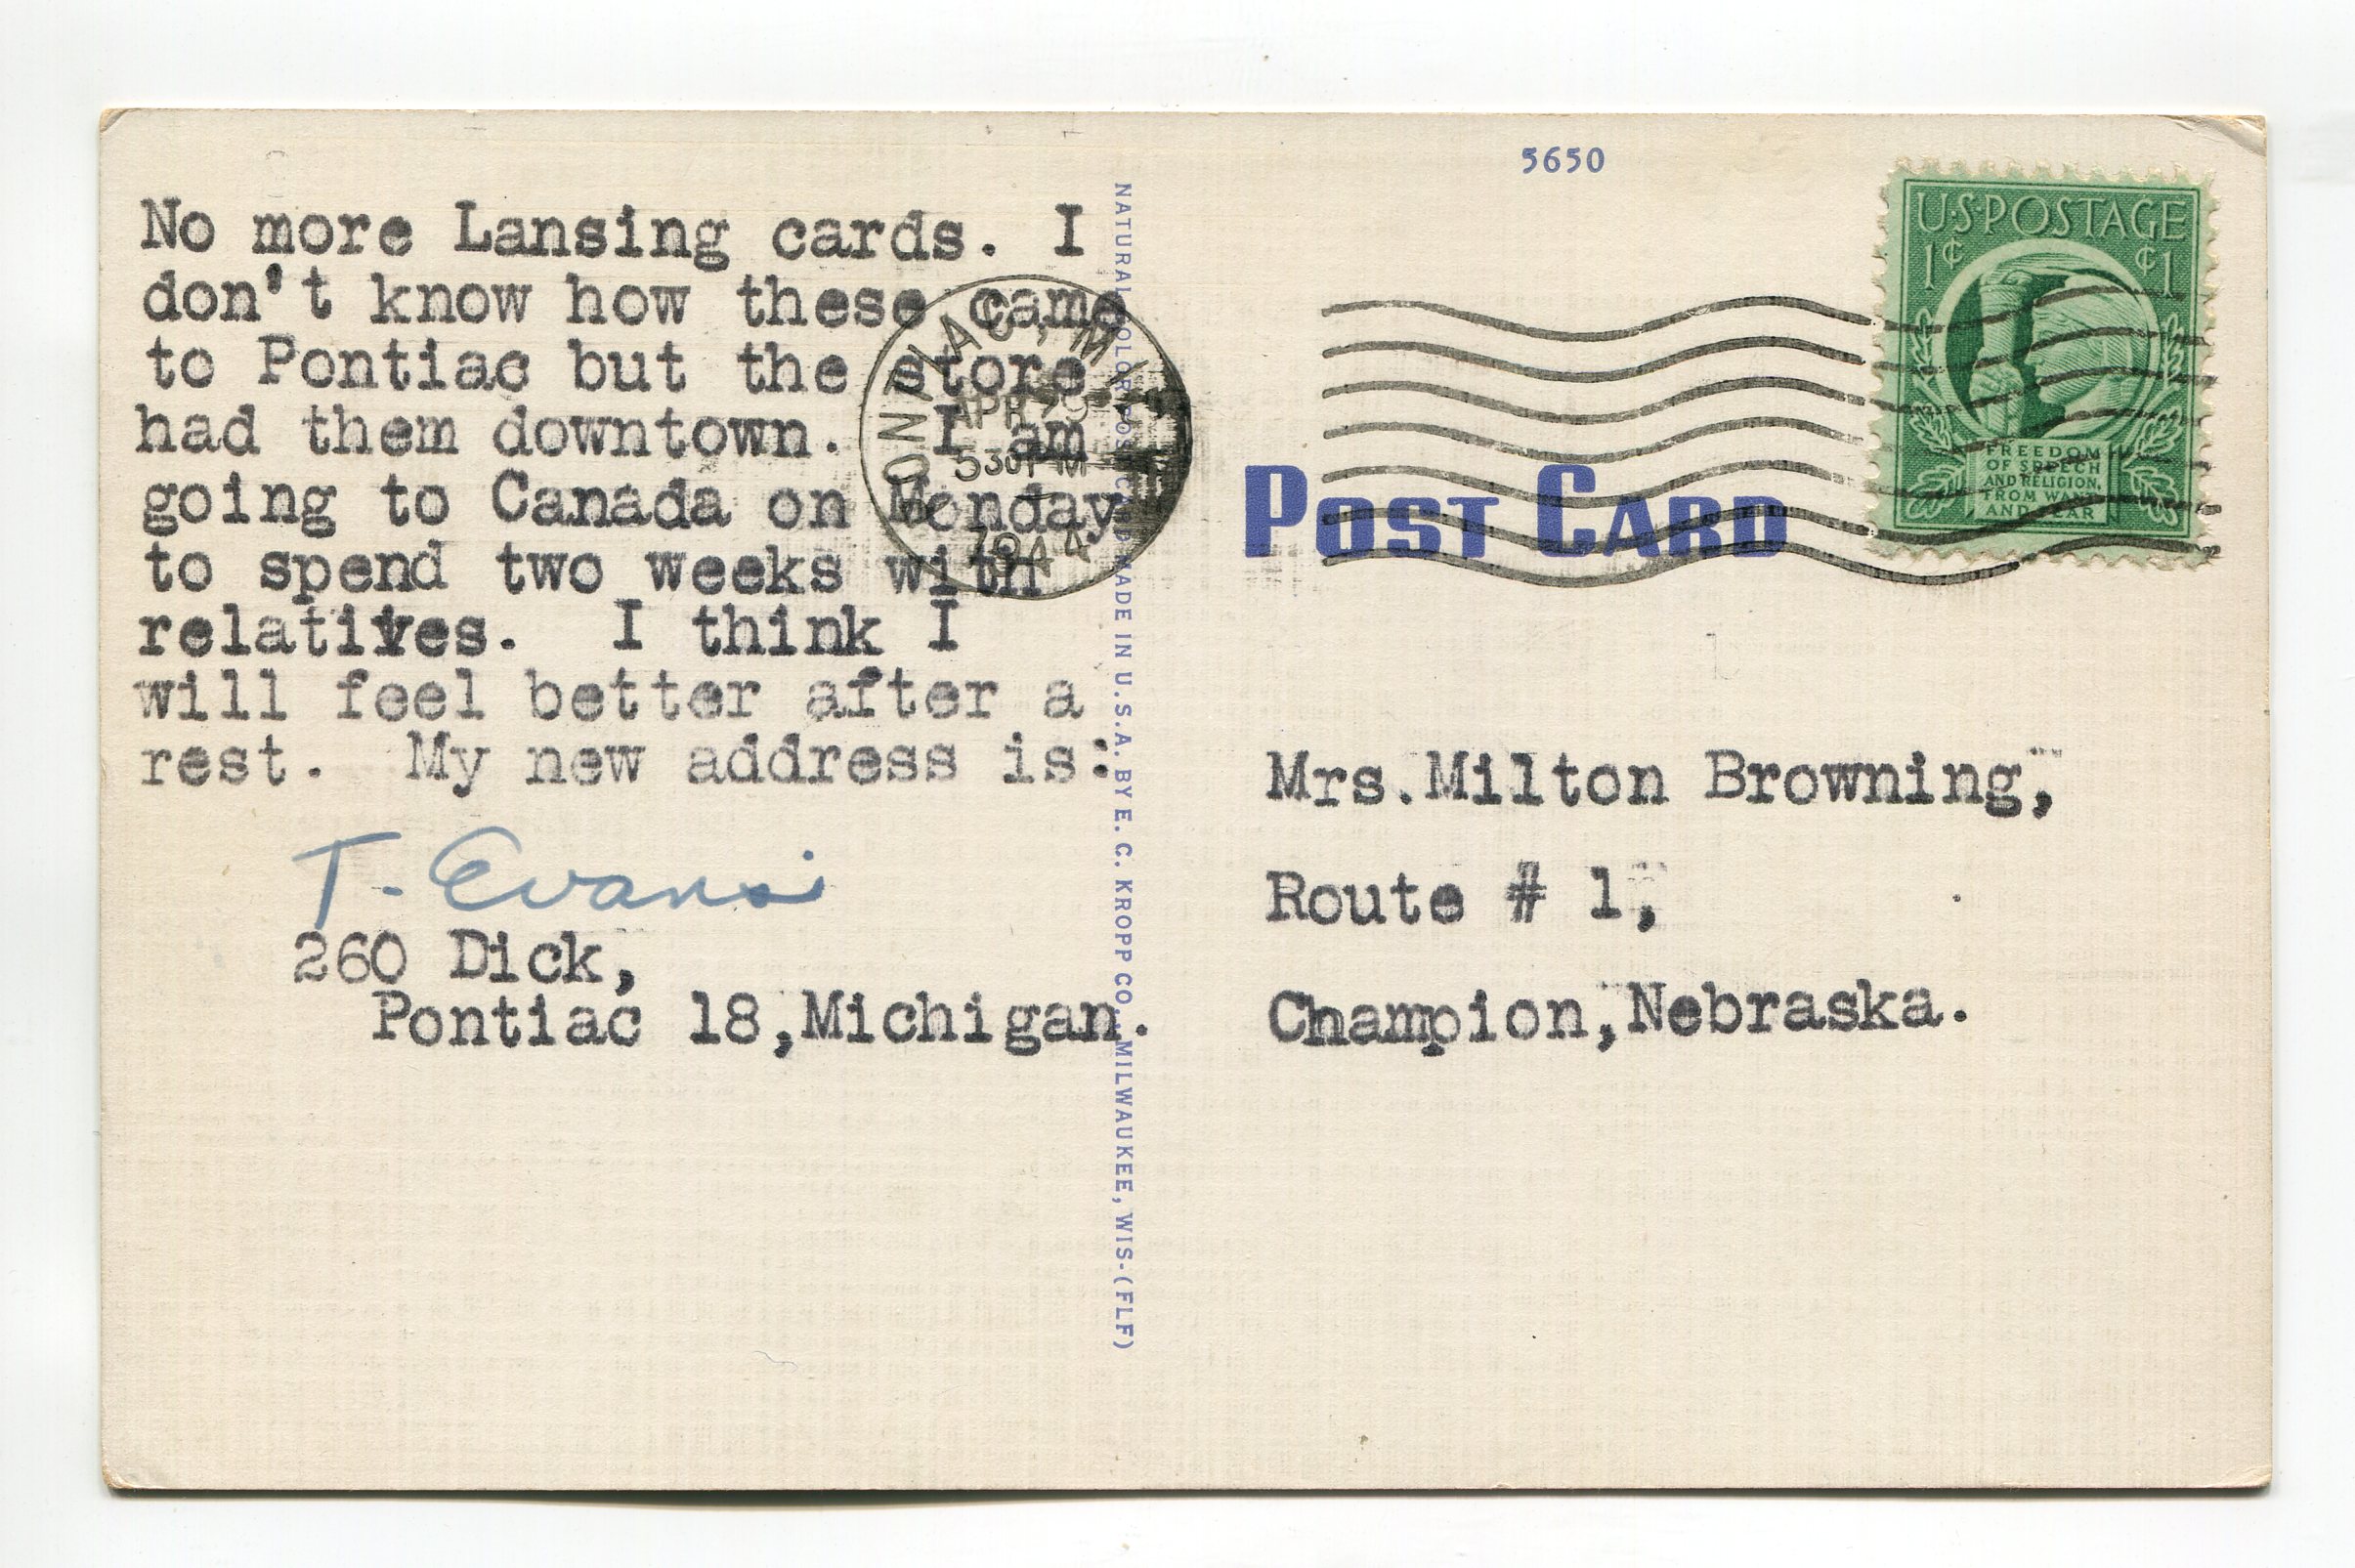 No more Lansing cards. I
don't know how these came
to Pontiac but the store
had them downtown. I am
going to Canada on Monday
to spend two weeks with
relatives. I think I
will feel better after a
rest. My new address is:
T. Evans
260 Dick,
Pontiac 18,Michigan.
PONTIAC, M
APR
530 PM
1944
NATURAL COLOR POST CARD MADE IN U.S.A. BY E. C. KROPP CO., MILWAUKEE, WIS-(FLF)
5650
U·S·POSTAGE
1¢ ¢1
FREEDOM
OF SPEECH
AND RELIGION,
FROM WANT
AND FEAR
POST CARD
Mrs.Milton Browning,
Route # 1,
Champion,Nebraska.